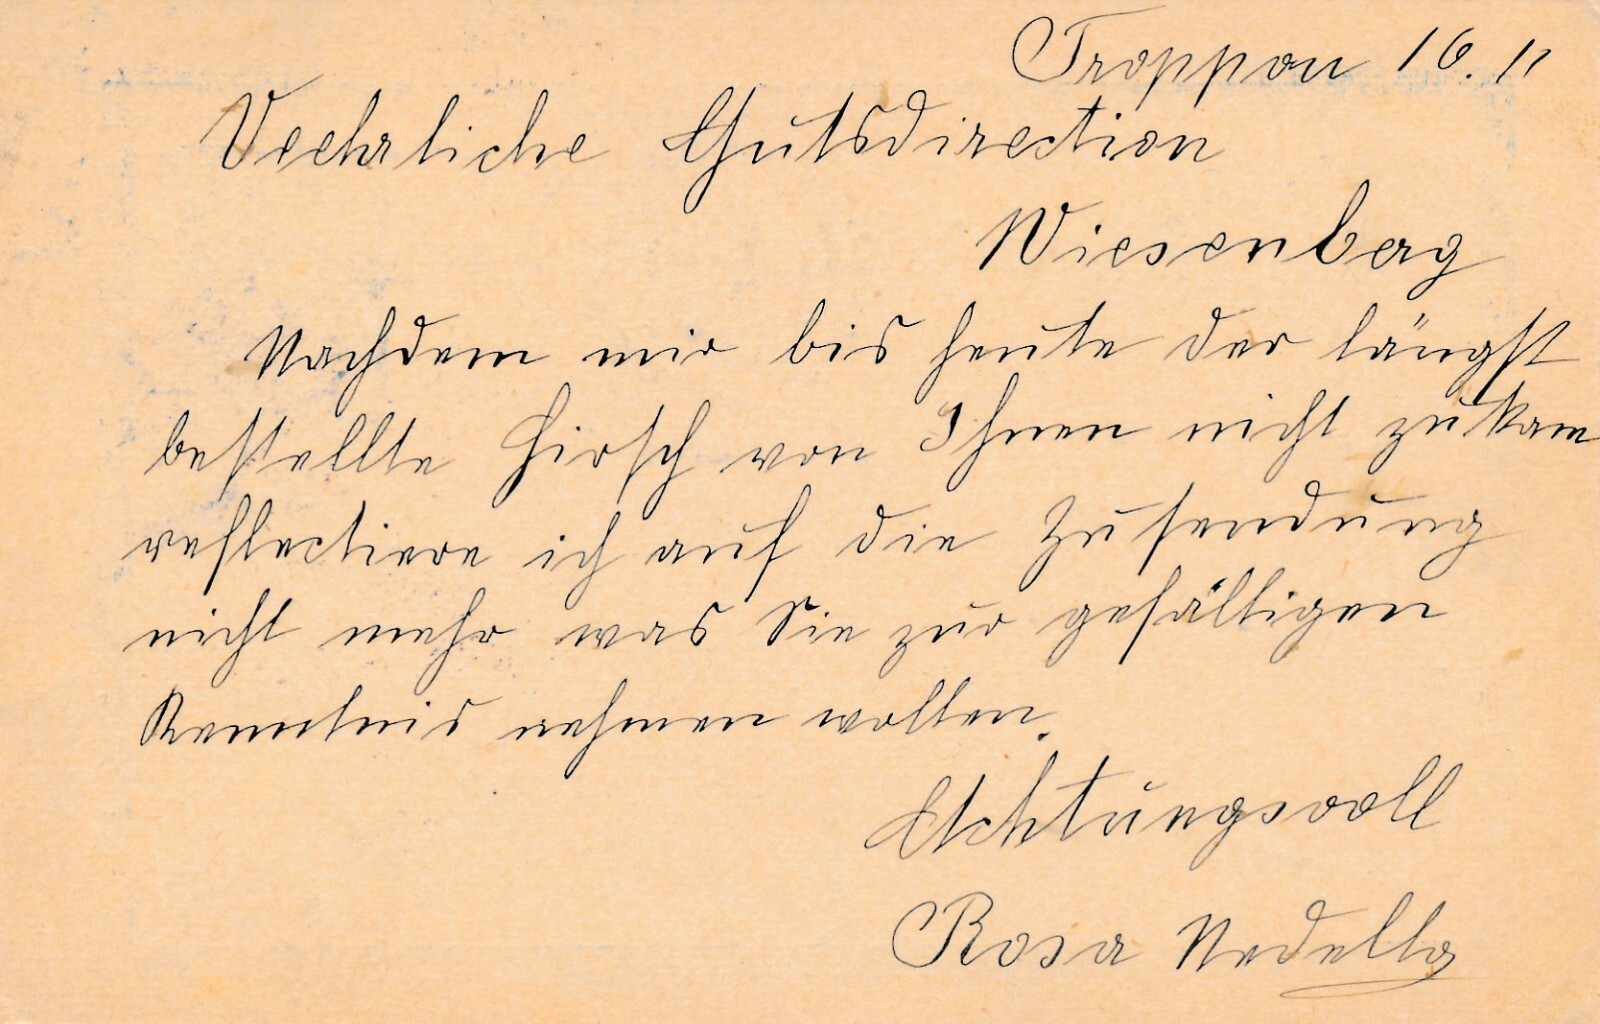 Troppau 16. 11
Veehrliche Gutsdirection
Wiesenberg
Nachdem mir bis heute der längst
bestellte Hirsch von Ihnen nicht zukam
reflectiere ich auf die Zusendung
nicht mehr was Sie zur gefälligen
Kenntnis nehmen wollen.
Achtungsvoll
Rosa Nedella